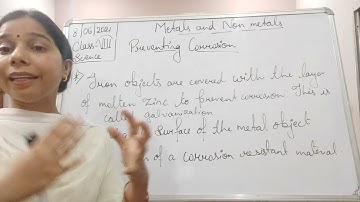 8/06/2021
Class-VIII
Science
Metals and Non metals
Preventing Corrosion
Iron objects are covered with the layer
of molten zinc to prevent corrosion This is
called galvanization
surface of the metal object
of a corrosion resistant material.